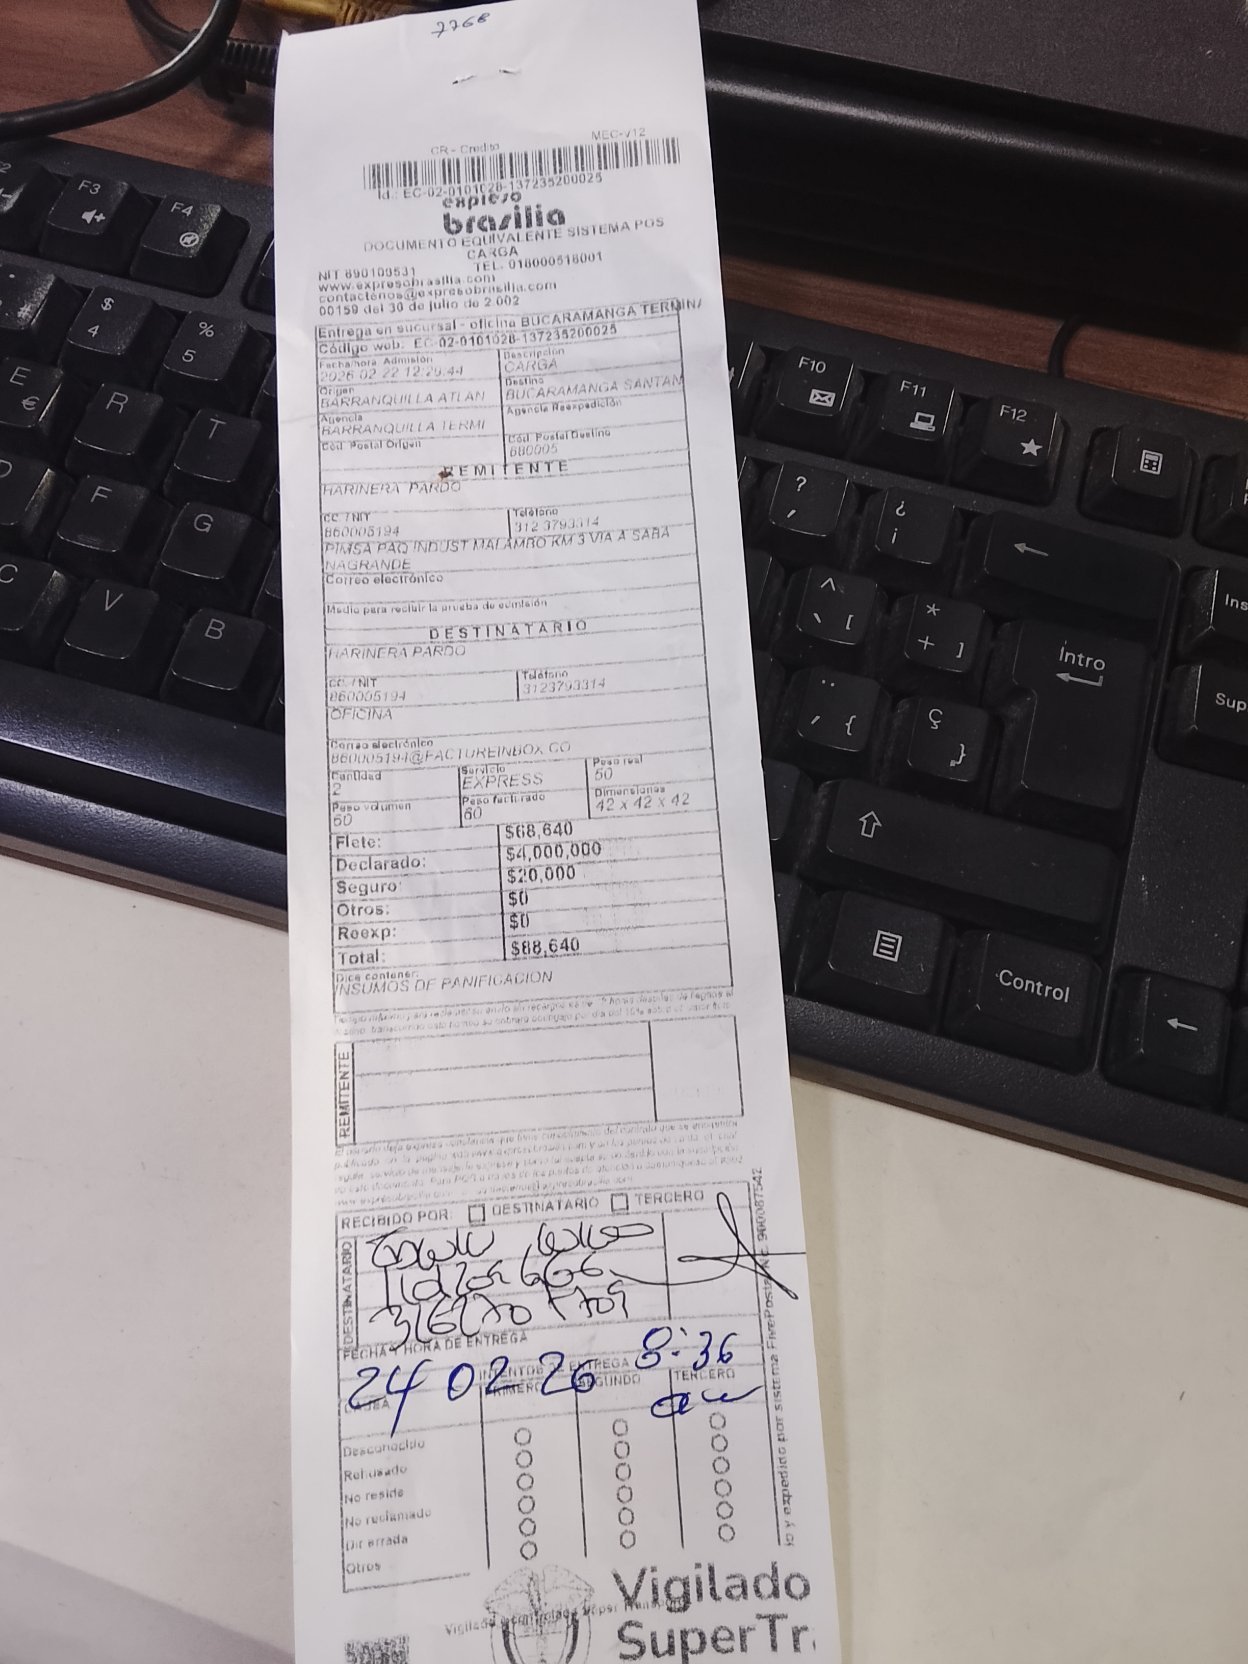 7768
MEC-V12
CR - Credito
Id.: EC-02-0101028-137235200025
expreso
brasilia
DOCUMENTO EQUIVALENTE SISTEMA POS
CARGA
NIT 890100531 TEL. 018000518001
www.expresobrasilia.com
contactenos@expresobrasilia.com
00159 del 30 de julio de 2.002
Entrega en sucursal - oficina BUCARAMANGA TERMINA
Código web: EC-02-0101028-137235200025
Fecha/hora Admisión Descripción
2026-02-22 12:29:44 CARGA
Origen Destino
BARRANQUILLA ATLAN BUCARAMANGA SANTAN
Agencia Agencia Reexpedición
BARRANQUILLA TERMI
Cód. Postal Origen Cód. Postal Destino
680005
REMITENTE
HARINERA PARDO
CC / NIT Teléfono
860005194 312 3793314
PIMSA PAQ INDUST MALAMBO KM 3 VIA A SABA
NAGRANDE
Correo electrónico
Medio para recibir la prueba de admisión
DESTINATARIO
HARINERA PARDO
CC / NIT Teléfono
860005194 3123793314
OFICINA
Correo electrónico
860005194@FACTUREINBOX.CO
Cantidad Servicio Peso real
2 EXPRESS 50
Peso volumen Peso facturado Dimensiones
60 60 42 x 42 x 42
Flete: $68,640
Declarado: $4,000,000
Seguro: $20,000
Otros: $0
Reexp: $0
Total: $88,640
Dice contener:
INSUMOS DE PANIFICACION
REMITENTE
RECIBIDO POR: DESTINATARIO TERCERO
DESTINATARIO
FECHA Y HORA DE ENTREGA
24 02 26 8:36
INTENTOS DE ENTREGA
CAUSA PRIMERO SEGUNDO TERCERO
Desconocido
Rehusado
No reside
No reclamado
Dir errada
Otros
Vigilado
SuperTr
F3
F4
$
4
%
5
E
€
R
T
F
G
C
V
B
F10
F11
F12
?
¿
¡
^
[
*
+ ]
Intro
Ins
Sup
{
Ç
}
Control